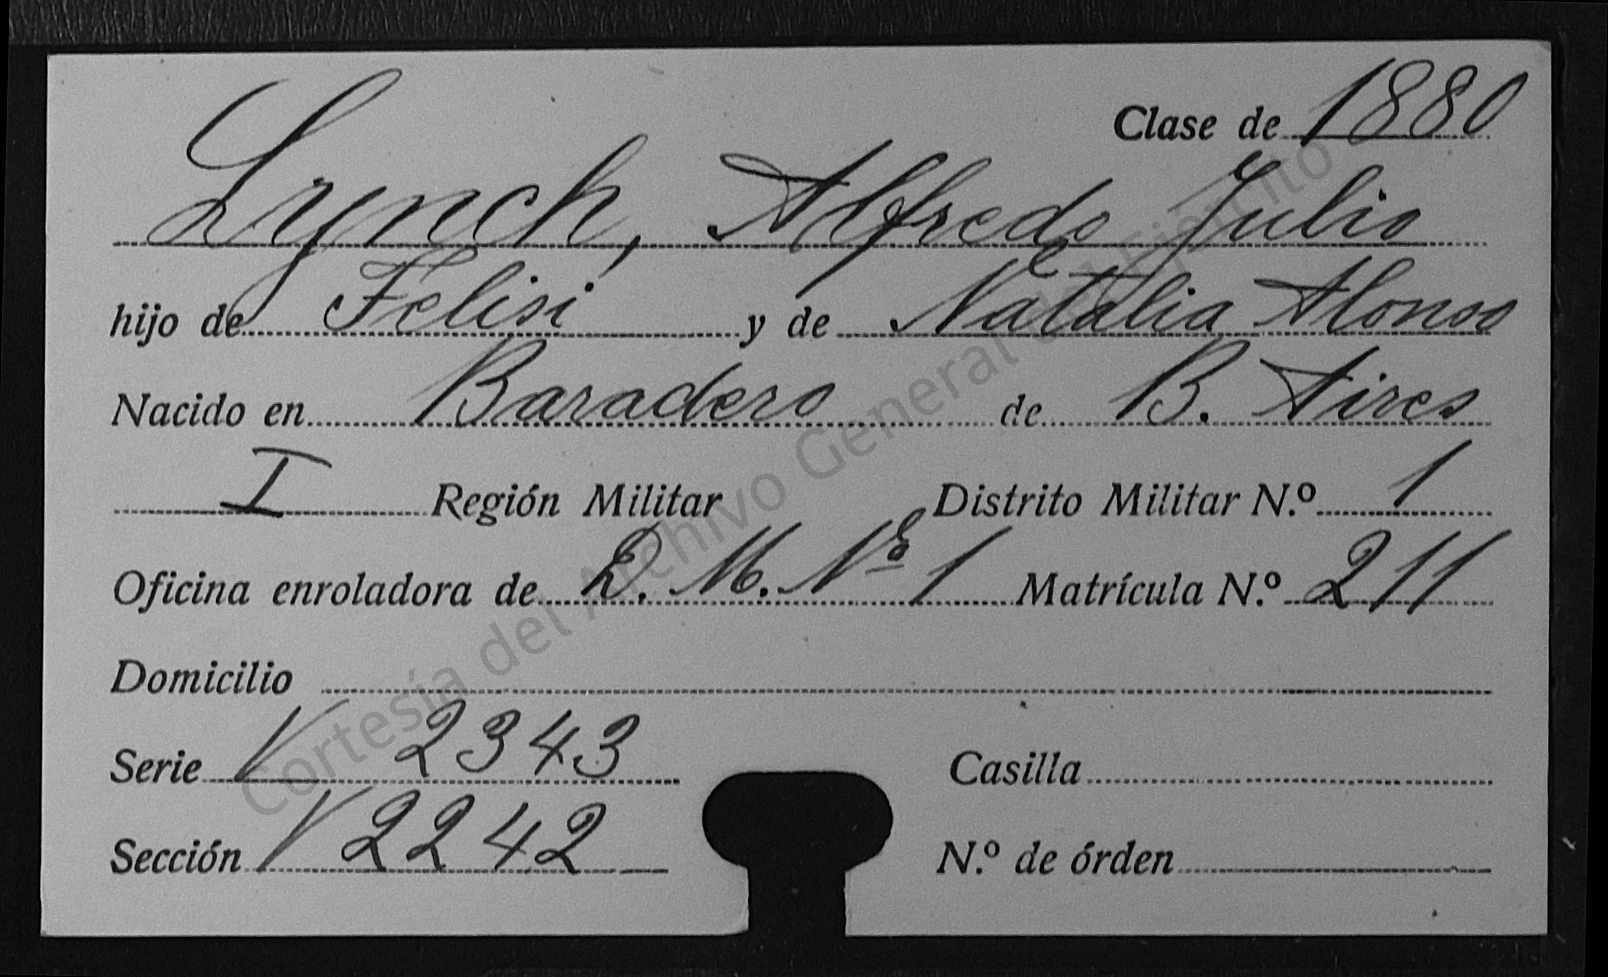 Clase de 1880
Lynch, Alfredo Julio
hijo de Felisi y de Natalia Alonso
Nacido en Baradero de B. Aires
I Región Militar Distrito Militar N.º 1
Oficina enroladora de D. M. Nº 1 Matrícula N.º 211
Domicilio
Serie V 2343 Casilla
Sección V 2242 N.º de órden
Cortesía del Archivo General del Ejército